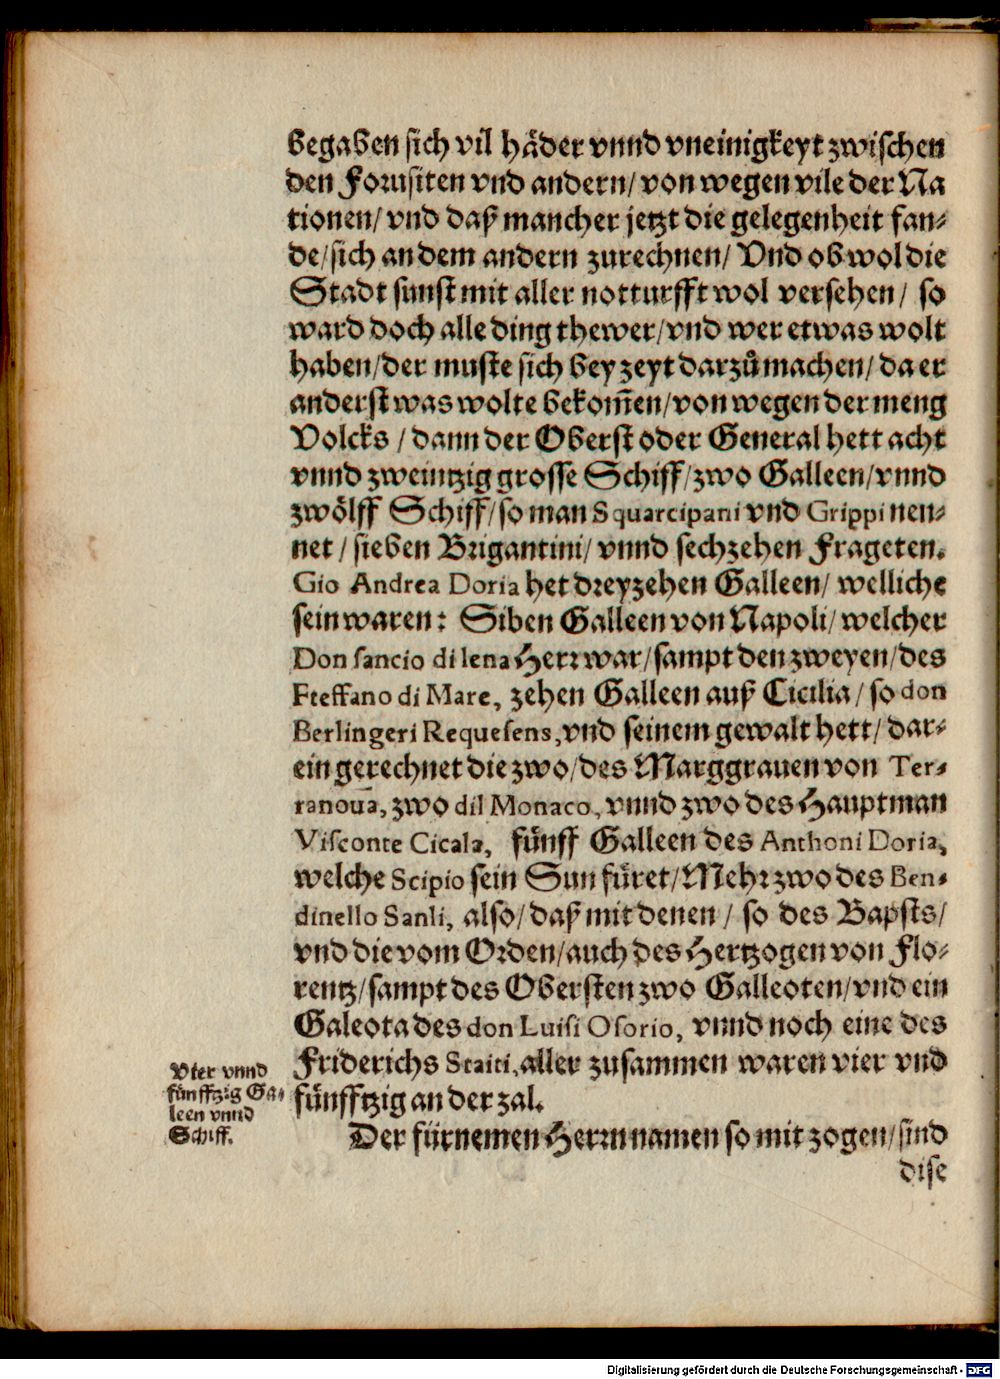 begaben sich vil häder vnnd vneinigkeyt zwischen
den Forusiten vnd andern/ von wegen vile der Na
tionen/ vnd daß mancher jetzt die gelegenheit fan-
de/ sich an dem andern zurechnen/ Vnd ob wol die
Stadt sunst mit aller notturfft wol versehen/ so
ward doch alle ding thewer/ vnd wer etwas wolt
haben/ der muste sich bey zeyt darzů machen/ da er
anderst was wolte bekom̄en/ von wegen der meng
Volcks/ dann der Oberst oder General hett acht
vnnd zweintzig grosse Schiff/ zwo Galleen/ vnnd
zwölff Schiff/ so man Squarcipani vnd Grippi nen-
net/ sieben Brigantini/ vnnd sechzehen Frageten.
Gio Andrea Doria het dreyzehen Galleen/ welliche
sein waren: Siben Galleen von Napoli/ welcher
Don sancio di lena Herr war/ sampt den zweyen/ des
Fteffano di Mare, zehen Galleen auß Cicilia/ so don
Berlingeri Requesens, vnd seinem gewalt hett/ dar-
ein gerechnet die zwo/ des Marggrauen von Ter-
ranoua, zwo dil Monaco, vnnd zwo des Hauptman
Visconte Cicala, fünff Galleen des Anthoni Doria,
welche Scipio sein Sun füret/ Mehr zwo des Ben-
dinello Sanli, also/ daß mit denen/ so des Bapsts/
vnd die vom Orden/ auch des Hertzogen von Flo-
rentz/ sampt des Obersten zwo Galleoten/ vnd ein
Galeota des don Luisi Osorio, vnnd noch eine des
Friderichs Staiti, aller zusammen waren vier vnd
fünfftzig an der zal.
Vier vnnd
fünfftzig Ga-
leen vnnd
Schiff.
Der fürnemen Herrn namen so mit zogen/ sind
dise
Digitalisierung gefördert durch die Deutsche Forschungsgemeinschaft - DFG